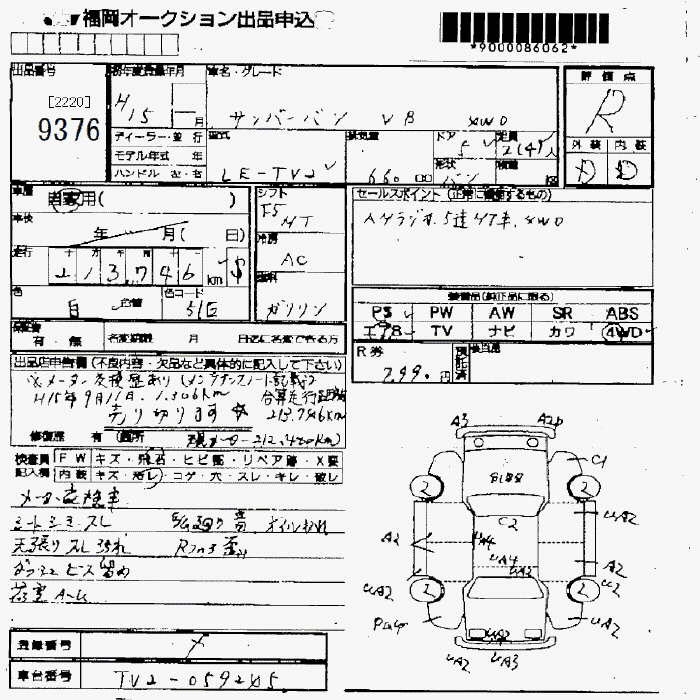 福岡オークション出品申込
*9000086062*
出品番号
[2220]
9376
初年度登録年月
H15 年 月
車名・グレード
サンバーバン VB 4WD
評価点
R
外装 内装
D D
ディーラー・並行
モデル年式 年
ハンドル 左・右
型式
LE-TV2
排気量
660 cc
ドア
5
形状
バン
定員
2(4)人
積載
kg
車歴
自家用( )
車検
年 月( 日)
走行
213,746 km
色
白
色替
色コード
51E
シフト
F5
MT
冷房
AC
燃料
ガソリン
セールスポイント(正常に機能するもの)
AMラジオ、5速MT車、4WD
装備品(純正品に限る)
PS PW AW SR ABS
エアB TV ナビ カワ 4WD
保証書
有・無
名変期限 月 日迄に名変できる方
R券
預託済
7,990円
出品店申告欄(不良内容・欠品など具体的に記入して下さい)
※メーター交換歴あり(メンテナンスノート記載)
H15年9月11日 1,306km
合算走行距離
213,746km
売り切ります☆
修復歴 有(箇所
現メーター212,440km)
検査員記入欄
FW キズ・飛石・ヒビ割・リペア跡・X要
内装 キズ・汚レ・コゲ・穴・スレ・キレ・破レ
メーター交換車
シートシミ・スレ
天張りスレ汚れ
ダッシュビス留め
荷室A・U
登録番号
車台番号
TV2-059245
A3
C1
2
2
UA2
C2
A2
UA4
UA4
UA2
A2
UA2
2
2
UA2
UA2
UA2
UA2
UA3